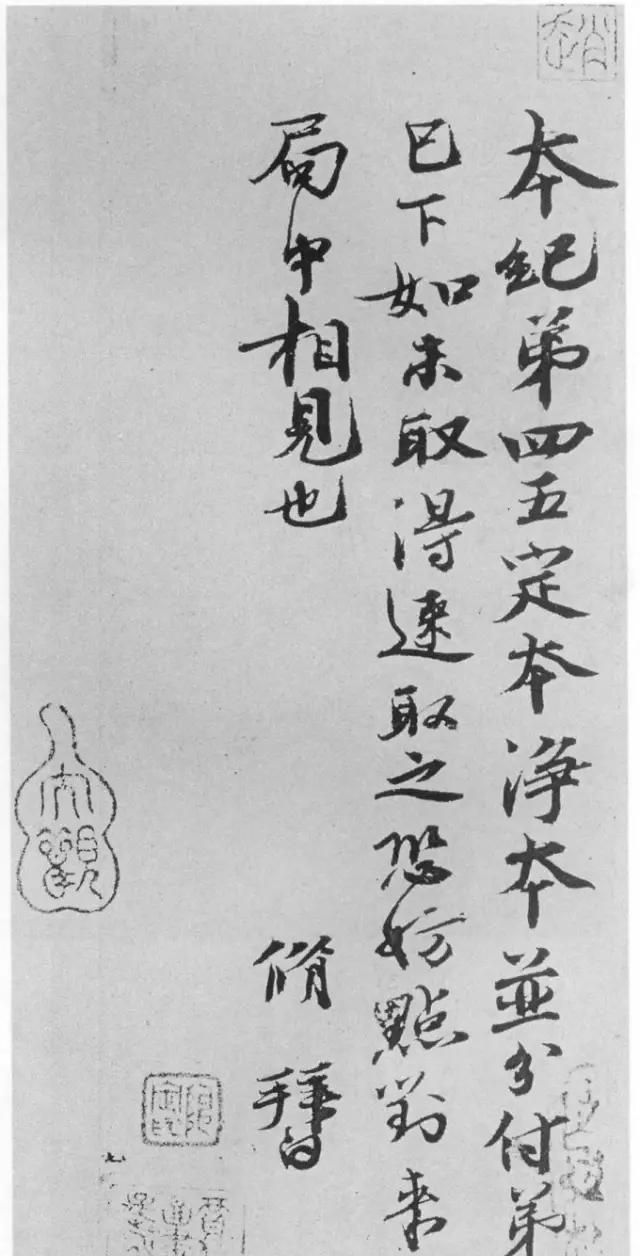 本紀弟四五定本浄本並分付弟
已下如未取得速取之恐妨點對来
局中相見也
脩 拜白
大觀